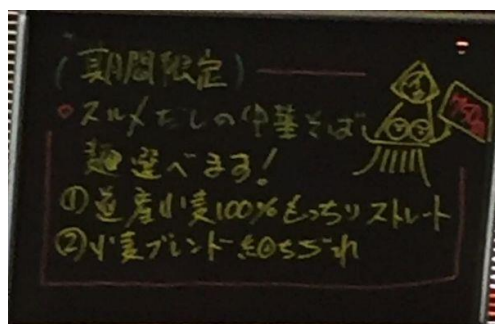 (期間限定)
○スルメだしの中華そば
麺選べます!
①道産小麦100%もっちりストレート
②小麦ブレンド細ちぢれ